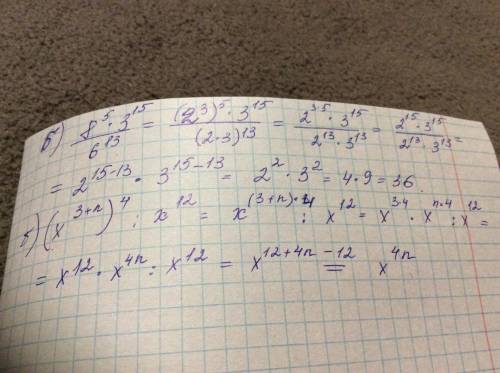 б) 8⁵·3¹⁵/6¹³ = (2³)⁵·3¹⁵/(2·3)¹³ = 2³·⁵·3¹⁵/2¹³·3¹³ = 2¹⁵·3¹⁵/2¹³·3¹³ =
= 2¹⁵⁻¹³ · 3¹⁵⁻¹³ = 2²·3² = 4·9 = 36.
б) (x³⁺ⁿ)⁴ : x¹² = x⁽³⁺ⁿ⁾·⁴ : x¹² = x³·⁴ · xⁿ·⁴ : x¹² =
= x¹² · x⁴ⁿ : x¹² = x¹²⁺⁴ⁿ⁻¹² = x⁴ⁿ